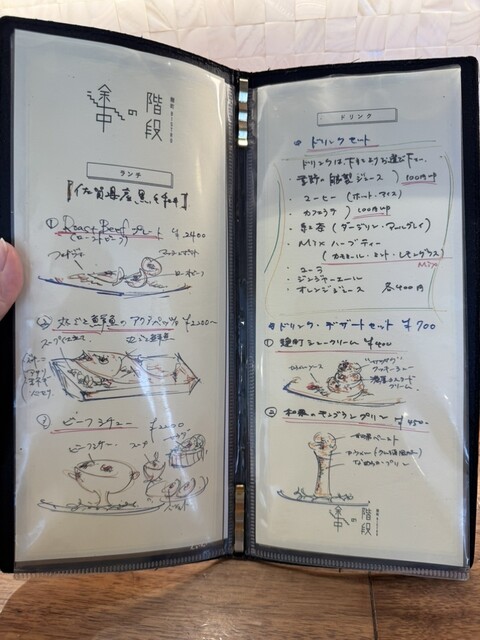 階段
の
途中
麹町 BISTRO
ランチ
『佐賀県産 黒毛和牛』
① Roast Beef プレート ¥2400
(ローストビーフ)
フォカッチャ
マッシュポテト
ローストビーフ
② 丸ごと鮮魚のアクアパッツァ ¥2200~
丸ごと鮮魚
③ ビーフシチュー ¥2200
ビーフシチュー
スープ
サラダ
ドリンク
ドリンクセット
ドリンクは下記よりお選び下さい
自家製ジュース) 100円up
・コーヒー (ホット・アイス)
・カフェラテ) 100円up
・紅茶 (ダージリン・アールグレイ)
・Mix ハーブティー
(カモミール・ミント・レモングラス)
Mix
・コーラ
・ジンジャーエール
・オレンジジュース 各400円
ドリンク・デザートセット ¥700
① 麹町シュークリーム ¥400
"サクサク"
クッキーシュー
濃厚カスタード
クリーム
② 和栗のモンブランプリン ¥450-
和栗ペースト
なめらかプリン
階段
の
途中
麹町 BISTRO